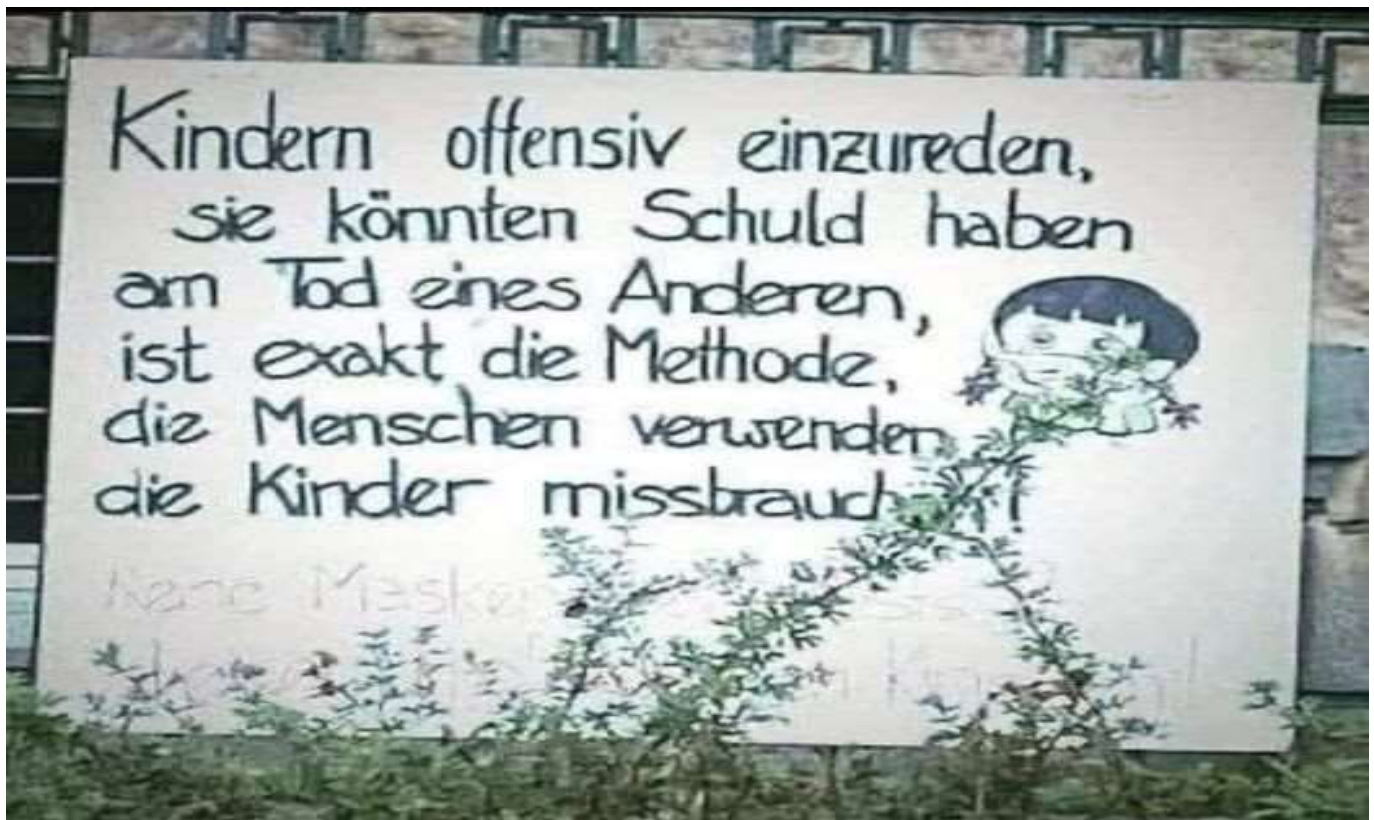 Kindern offensiv einzureden,
sie könnten Schuld haben
am Tod eines Anderen,
ist exakt die Methode,
die Menschen verwenden,
die Kinder missbrauch
Keine Maske